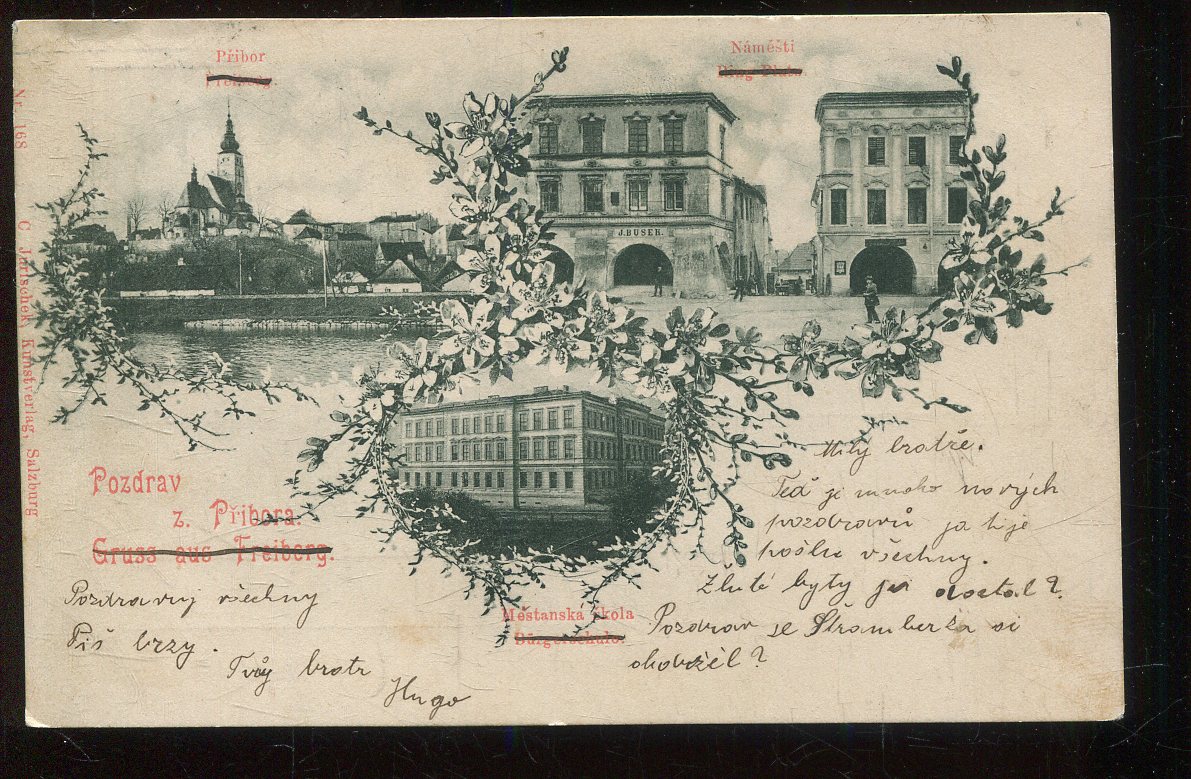 Příbor
Freiberg.
Náměští
Ring-Platz.
J. BUSEK.
Nr. 168
C. Jurischek, Kunstverlag, Salzburg
Pozdrav
z. Příbora.
Gruss aus Freiberg.
Měštanská škola
Bürgerschule.
Milý bratře.
Teď je mnoho nových
pozdravů ja ti je
pošlu všechny.
Žluté byty js dostal?
Pozdrav se Štramberka si
obdržel?
Pozdravuj všechny
Piš brzy.
Tvůj bratr
Hugo